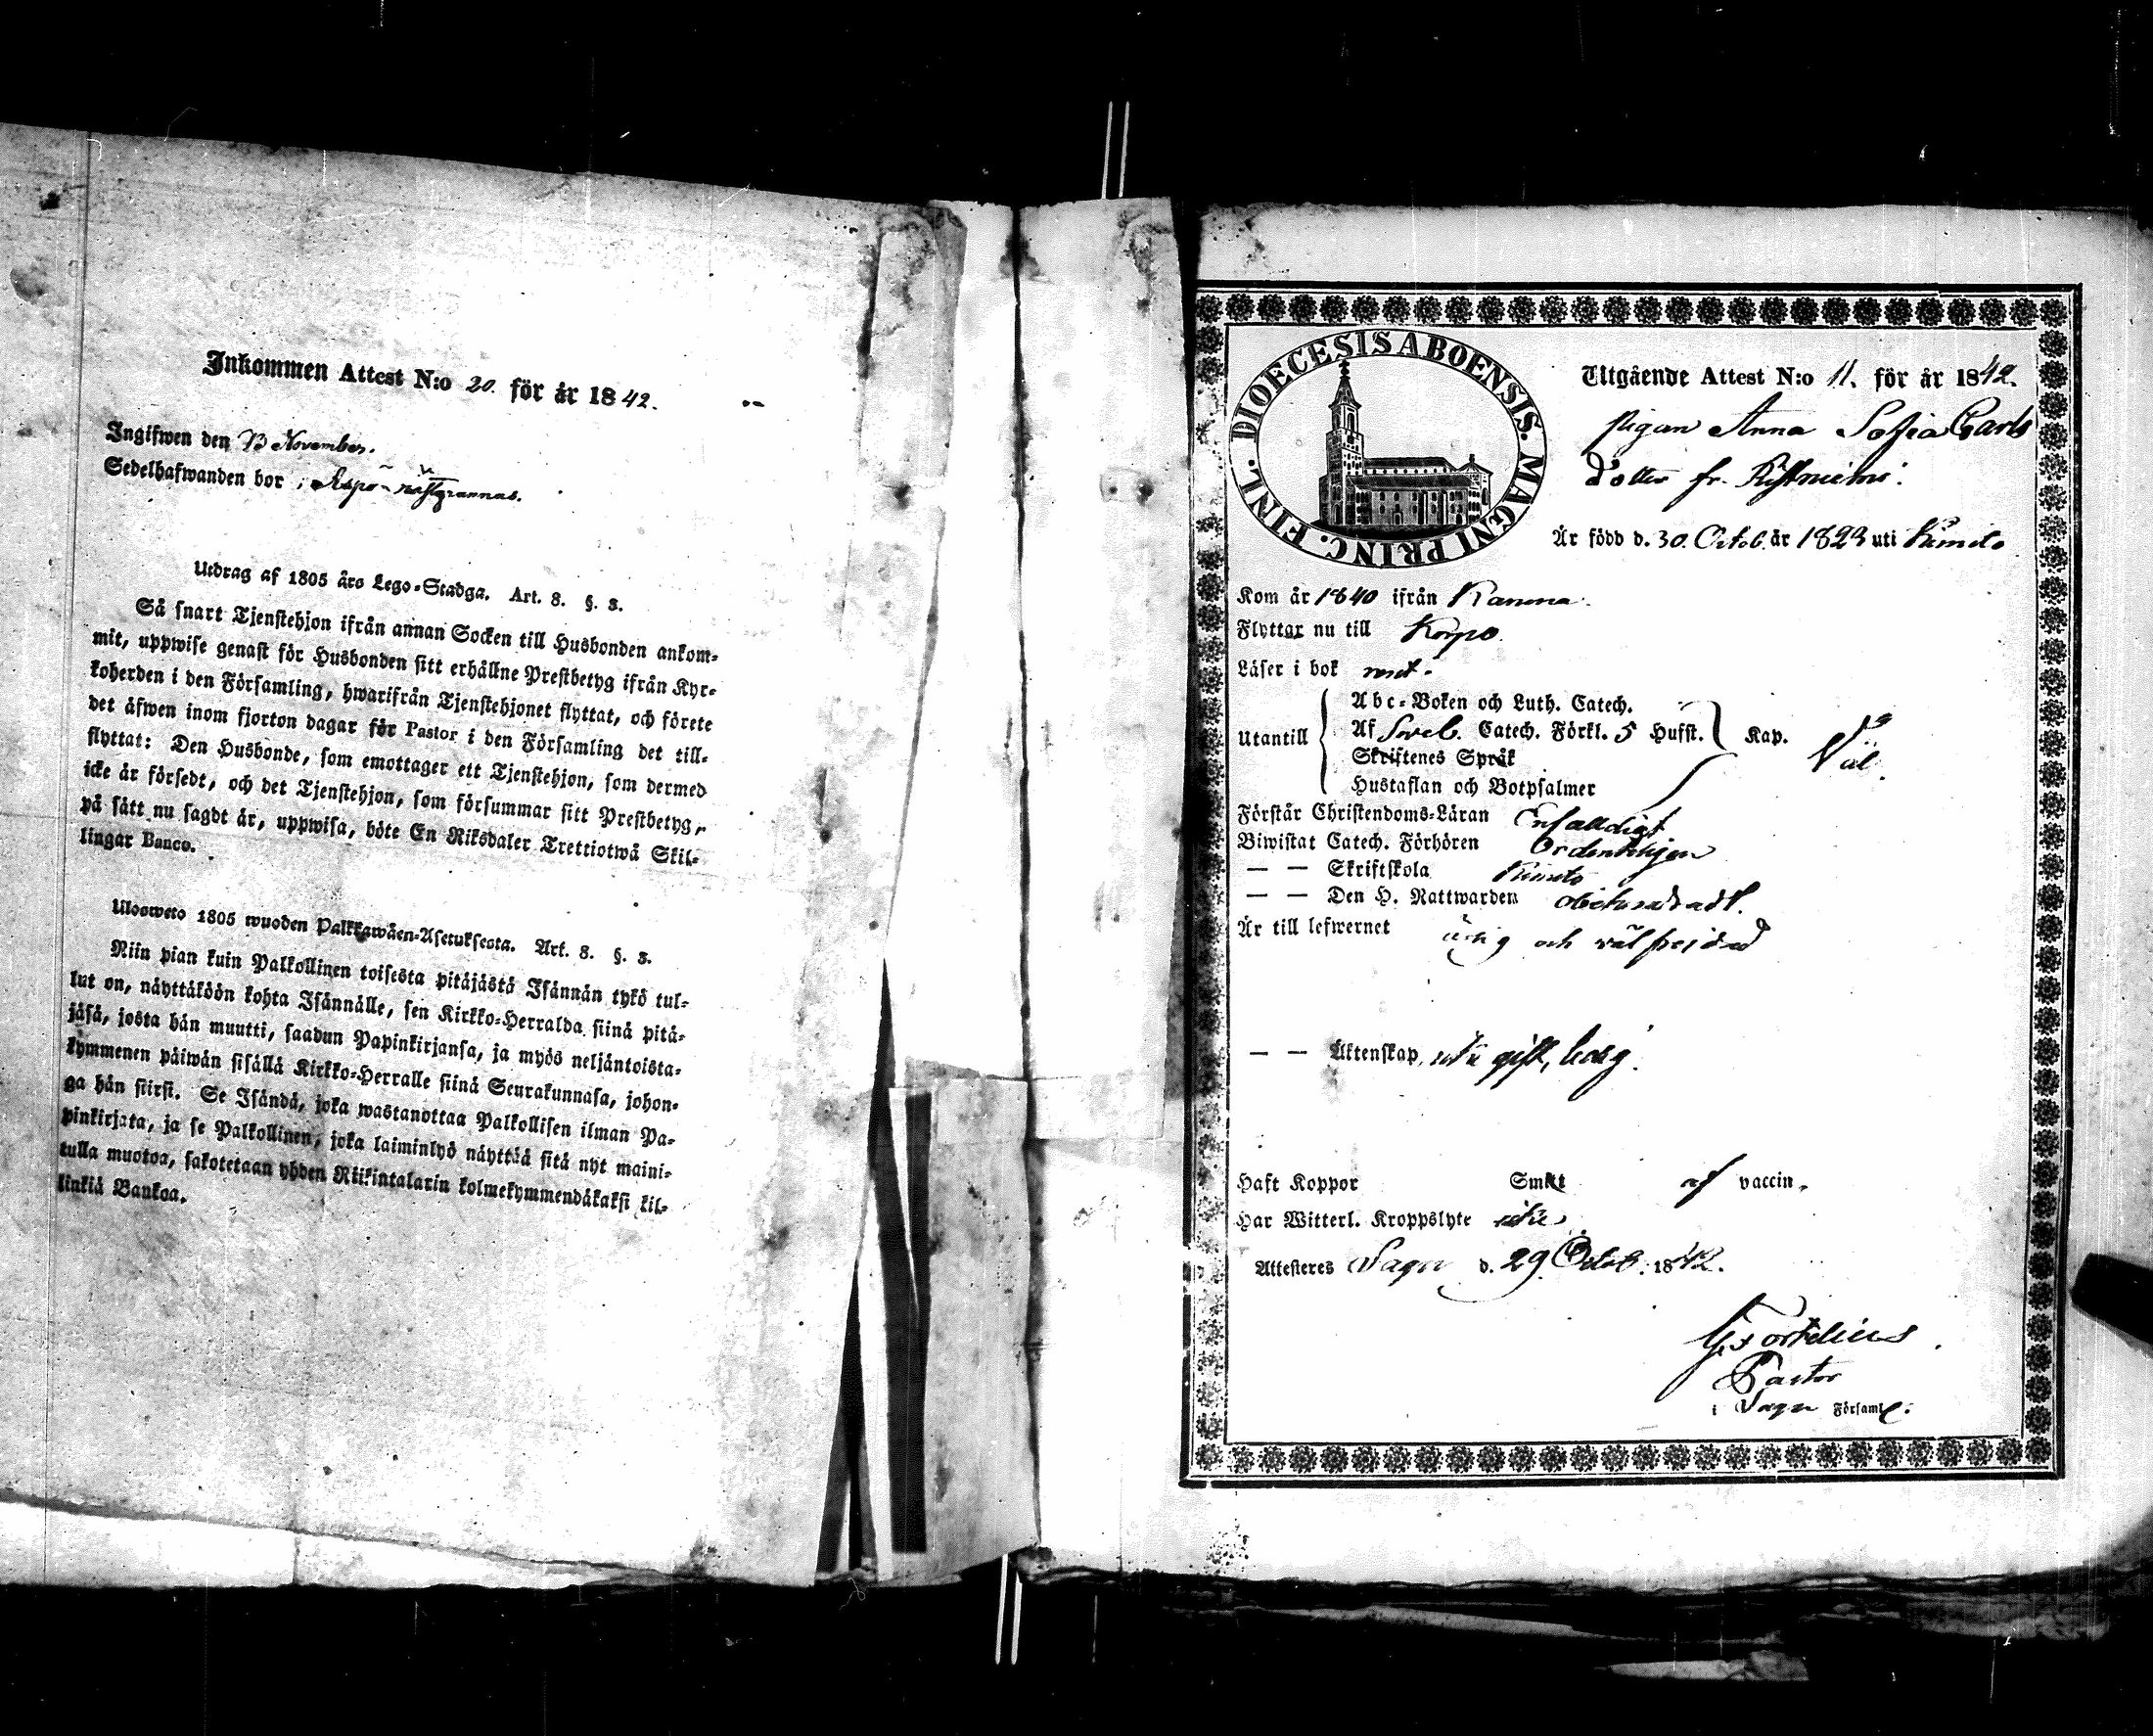 Inkommen Attest N:o 20. för år 1842.
Ingifwen den 13 November.
Sedelhafwanden bor i
Utdrag af 1805 års Lego-Stadga. Art. 8. §. 3.
Så snart Tjenstehjon ifrån annan Socken till Husbonden ankom-
mit, uppwise genast för Husbonden sitt erhållne Prestbetyg ifrån Kyr-
koherden i den Församling, hwarifrån Tjenstehjonet flyttat, och förete
det äfwen inom fjorton dagar för Pastor i den Församling det till-
flyttat: Den Husbonde, som emottager ett Tjenstehjon, som dermed
icke är försedt, och det Tjenstehjon, som försummar sitt Prestbetyg,
på sätt nu sagdt är, uppwisa, böte En Riksdaler Trettiotwå Skil-
lingar Banco.
Ulosweto 1805 wuoden Palkkawäen-Asetuksesta. Art. 8. §. 3.
Niin pian kuin Palkollinen toisesta pitäjästä Isännän tykö tul-
lut on, näyttäköön kohta Isännälle, sen Kirkko-Herralda siinä pitä-
jäsä, josta hän muutti, saadun Papinkirjansa, ja myös neljäntoista-
kymmenen päiwän sisällä Kirkko-Herralle siinä Seurakunnasa, johon-
ga hän siirsi. Se Isändä, joka wastanottaa Palkollisen ilman Pa-
pinkirjata, ja se Palkollinen, joka laiminlyö näyttää sitä nyt maini-
tulla muotoa, sakotetaan yhden Riikintalarin kolmekymmendäkaksi kil-
linkiä Bankoa.
DIOECESIS ABOENSIS. MAGNI PRINC. FINL.
Utgående Attest N:o 11. för år 1842.
pigan Anna Sofia Carls
dotter fr.
Är född d. 30. Octob. år 1823 uti Kimito
Kom år 1840 ifrån
Flyttar nu till Korpo.
Läser i bok rent.
Abc-Boken och Luth. Catech.
Utantill Af Sveb. Catech. Förkl. 5 Hufst. Kap. Väl.
Skriftenes Språk
Hustaflan och Botpsalmer
Förstår Christendoms-Läran Enfalldigt
Biwistat Catech. Förhören Ordentligen
— — Skriftskola Kimito
— — Den H. Nattwarden obehindradt.
Är till lefwernet ärlig och väl frejdad
— — Äktenskap, icke gift, ledig.
Haft Koppor Smitt af vaccin.
Har Witterl. Kroppslyte icke
Attesteres Sagu d. 29 Octob. 1842.
G. Tortelius.
Pastor
i Sagu Församl.